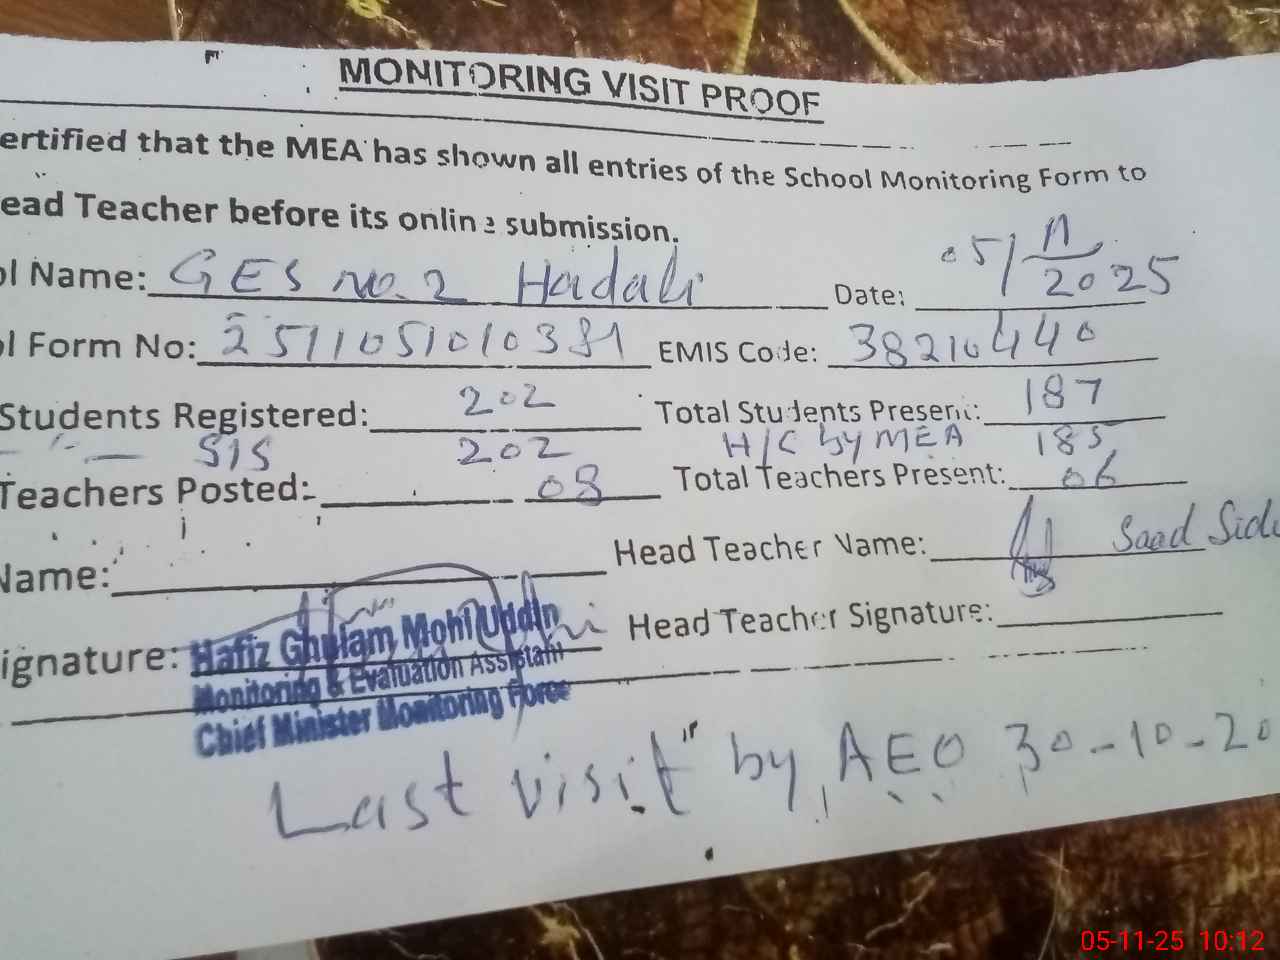 MONITORING VISIT PROOF
ertified that the MEA has shown all entries of the School Monitoring Form to
ead Teacher before its online submission.
ol Name: GES no. 2 Hadali Date: 05/11/2025
ol Form No: 2511051010381 EMIS Code: 38210440
Students Registered: 202 Total Students Present: 187
SIS 202 H/C by MEA 185
Teachers Posted: 08 Total Teachers Present: 06
Name: Head Teacher Name: Saad Sidi
ignature: Head Teacher Signature:
Hafiz Ghulam Mohi Uddin
Monitoring & Evaluation Assistant
Chief Minister Monitoring Force
Last visit by AEO 30-10-20
05-11-25 10:12